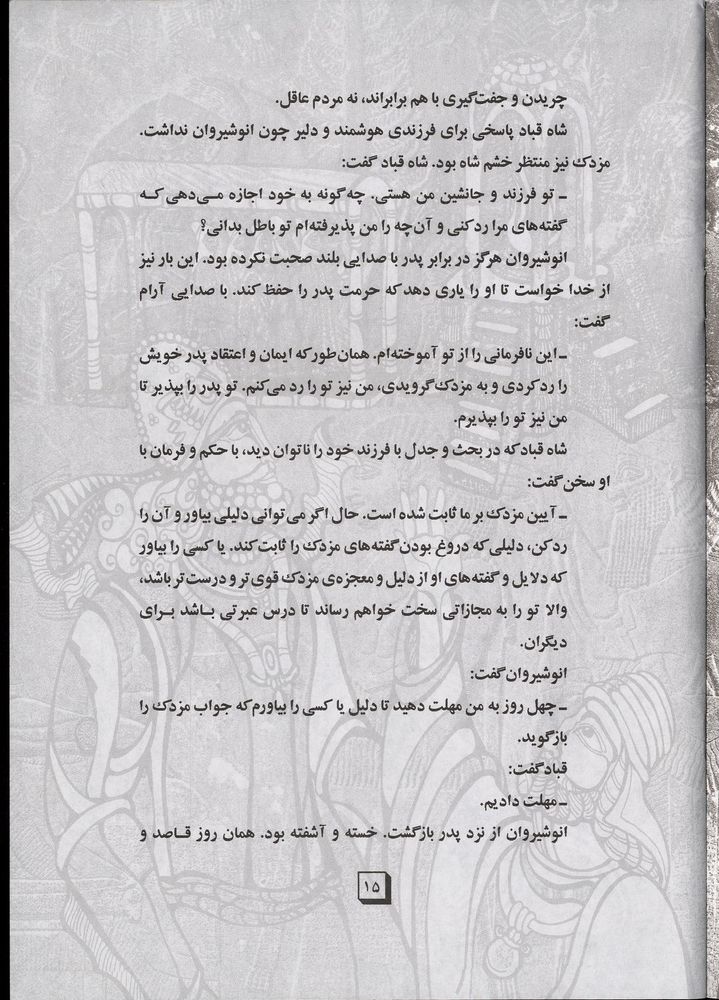 چریدن و جفت‌گیری با هم برابراند، نه مردم عاقل.
شاه قباد پاسخی برای فرزندی هوشمند و دلیر چون انوشیروان نداشت.
مزدک نیز منتظر خشم شاه بود. شاه قباد گفت:
ـ تو فرزند و جانشین من هستی. چه‌گونه به خود اجازه مـی‌دهی کـه
گفته‌های مرا رد کنی و آن‌چه را من پذیرفته‌ام تو باطل بدانی؟
انوشیروان هرگز در برابر پدر با صدایی بلند صحبت نکرده بود. این بار نیز
از خدا خواست تا او را یاری دهد که حرمت پدر را حفظ کند. با صدایی آرام
گفت:
ـ این نافرمانی را از تو آموخته‌ام. همان‌طور که ایمان و اعتقاد پدر خویش
را رد کردی و به مزدک گرویدی، من نیز تو را رد می‌کنم. تو پدر را بپذیر تا
من نیز تو را بپذیرم.
شاه قباد که در بحث و جدل با فرزند خود را ناتوان دید، با حکم و فرمان با
او سخن گفت:
ـ آیین مزدک بر ما ثابت شده است. حال اگر می‌توانی دلیلی بیاور و آن را
رد کن، دلیلی که دروغ بودن گفته‌های مزدک را ثابت کند. یا کسی را بیاور
که دلایل و گفته‌های او از دلیل و معجزه‌ی مزدک قوی‌تر و درست‌تر باشد،
والا تو را به مجازاتی سخت خواهم رساند تا درس عبرتی بـاشد بـرای
دیگران.
انوشیروان گفت:
ـ چهل روز به من مهلت دهید تا دلیل یا کسی را بیاورم که جواب مزدک را
بازگوید.
قباد گفت:
ـ مهلت دادیم.
انوشیروان از نزد پدر بازگشت. خسته و آشفته بود. همان روز قـاصد و
۱۵